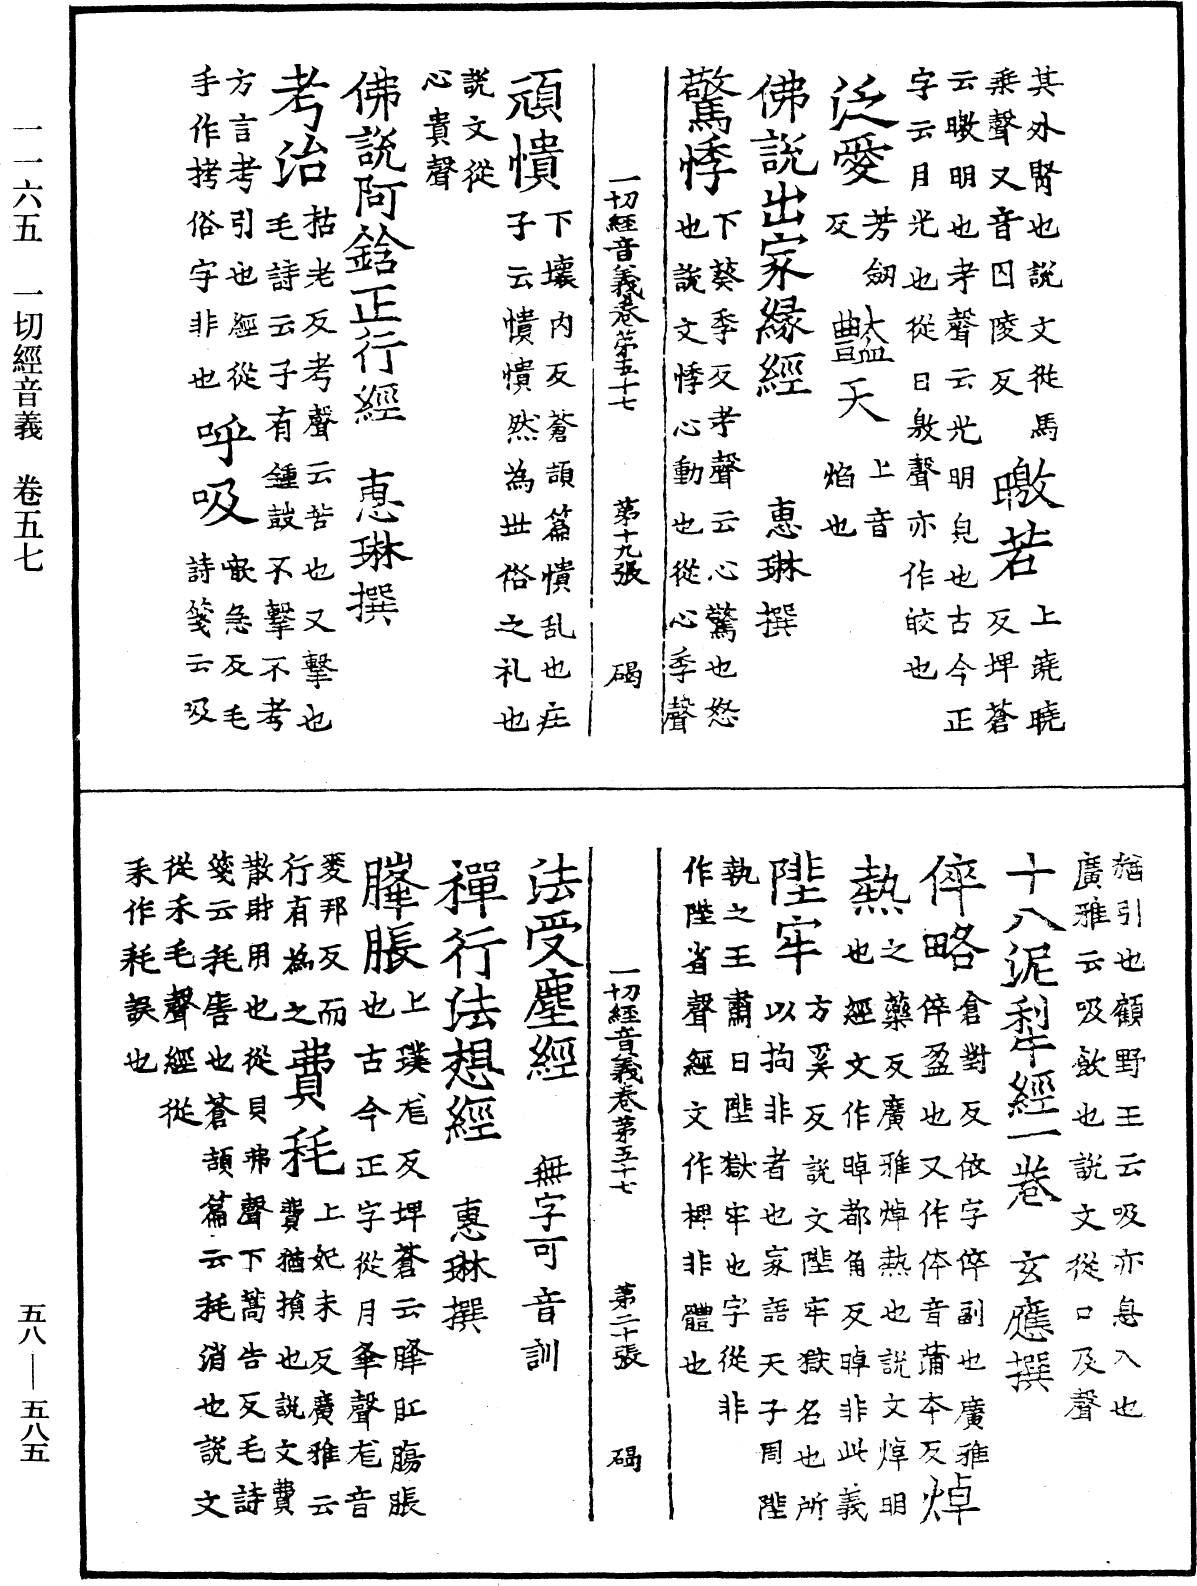 一一六五　一切經音義　卷五七
五八——五八五
其外腎也說文從馬
乘聲又音囚陵反
曒若
上蹺曉反埤蒼
云曒明也考聲云光明皃也古今正
字云月光也從日敫聲亦作皎也
泛愛
芳劒反
豔天
上音焰也
佛說出家緣經　惠琳撰
驚悸
下葵季反考聲云心驚也怒
也說文悸心動也從心季聲
一切經音義卷第五十七　第十九張　碣
頑憒
下壞內反蒼頡篇憒亂也庄
子云憒憒然為世俗之礼也
說文從
心貴聲
佛說阿鋡正行經　惠琳撰
考治
枯老反考聲云苦也又擊也
毛詩云子有鍾鼓不擊不考
方言考引也經從
手作拷俗字非也
呼吸
歆急反毛
詩箋云吸
猶引也顧野王云吸亦息入也
廣雅云吸歛也說文從口及聲
十八泥利牢經一卷　玄應撰
倅略
倉對反依字倅副也廣雅
倅盈也又作伜音莆本反
焯熱
之藥反廣雅焯熱也說文焯明
也經文作晫都角反晫非此義
陛牢
方奚反說文陛牢獄名也所
以拘非者也家語天子周陛
執之王肅曰陛獄牢也字從非
作陛省聲經文作椑非體也
一切經音義卷第五十七　第二十張　碣
法受塵經　無字可音訓
禪行法想經　惠琳撰
胮脹
上璞尨反埤蒼云胮肛腸脹
也古今正字從月夆聲尨音
夌邦反而
行有為之
費耗
上妃未反廣雅云
費猶損也說文費
散財用也從貝弗聲下蒿告反毛詩
箋云耗害也蒼頡篇云耗消也說文
從禾毛聲經從
耒作耗誤也